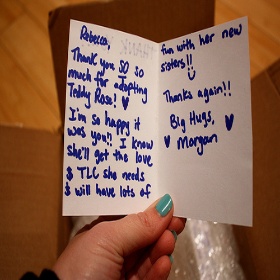 Rebecca,
Thank you SO so
much for adopting
Teddy Rose! ♥
I'm so happy it
was you!! I know
she'll get the love
& TLC she needs
& will have lots of
fun with her new
sisters!!
Thanks again!!
Big Hugs,
♥ Morgan ♥